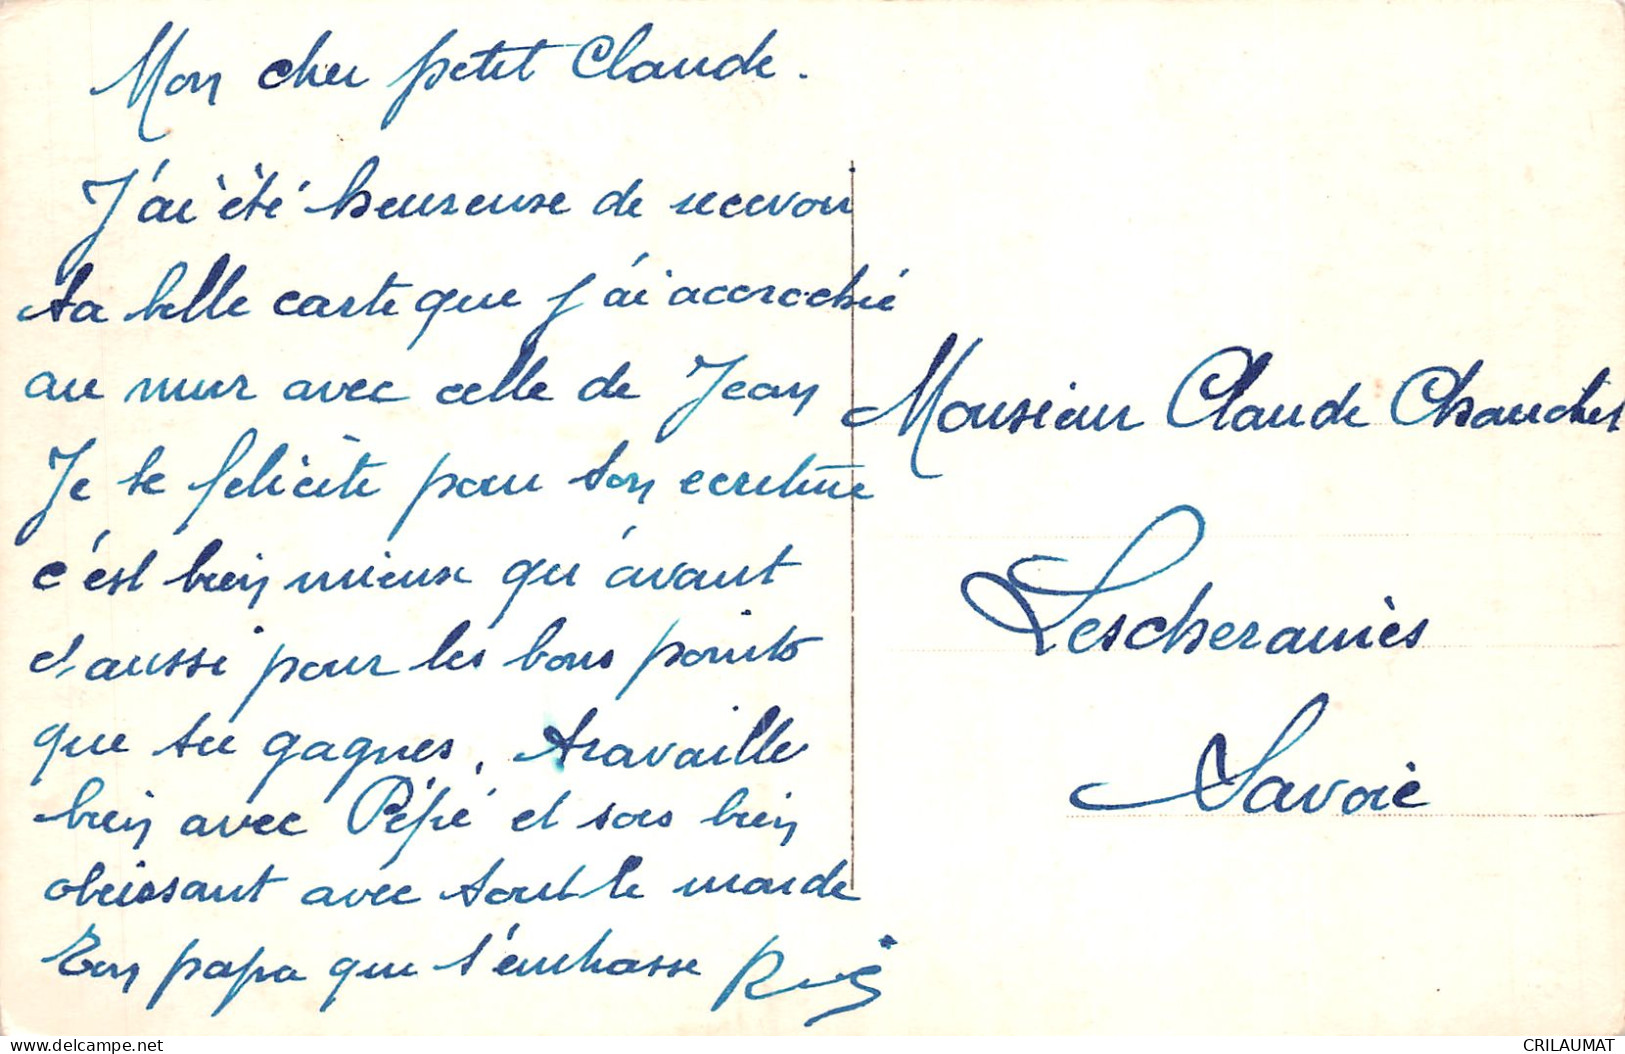 Mon cher petit Claude.
J'ai été heureuse de recevoir
ta belle carte que j'ai accrochée
au mur avec celle de Jean
Je te félicite pour ton ecriture
c'est bien mieux qu'avant
et aussi pour les bons points
que tu gagnes, travaille
bien avec Pépé et sois bien
obéissant avec tout le monde
Ton papa que t'embrasse
Monsieur Claude Chauchet
Lescheraines
Savoie
CRILAUMAT